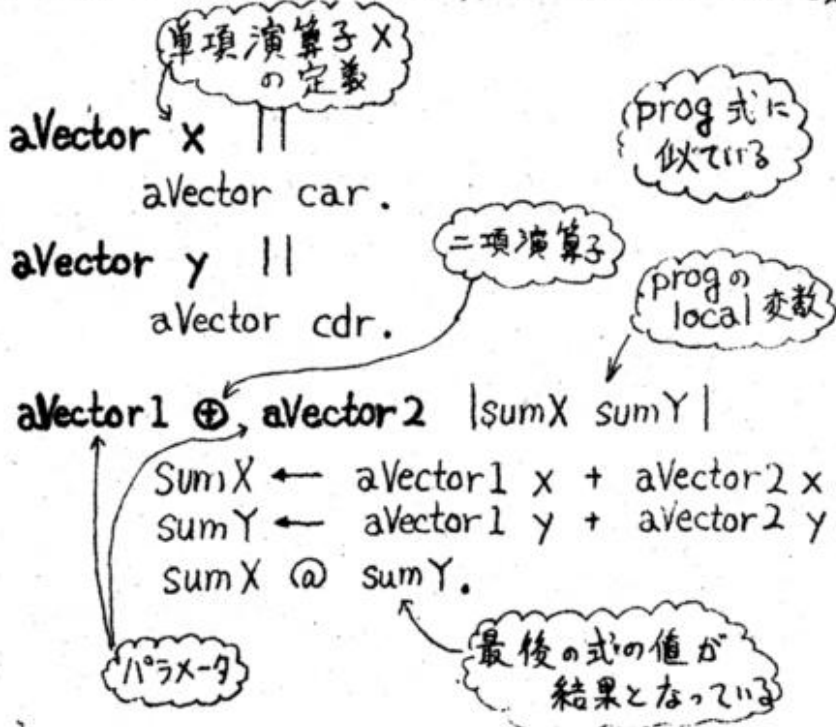 単項演算子 x
の定義
aVector x ||
aVector car.
prog 式に
似ている
aVector y ||
aVector cdr.
二項演算子
progの
local 変数
aVector1 ⊕ aVector2 |sumX sumY|
sumX ← aVector1 x + aVector2 x
sumY ← aVector1 y + aVector2 y
sumX @ sumY.
パラメータ
最後の式の値が
結果となっている